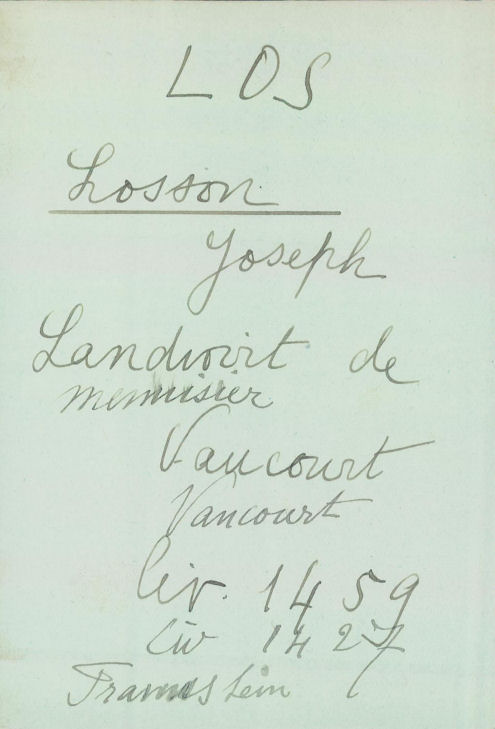 LOS
Losson
Joseph
Landwirt de
menuisier
Vaucourt
Vancourt
Civ. 1459
Civ 1427